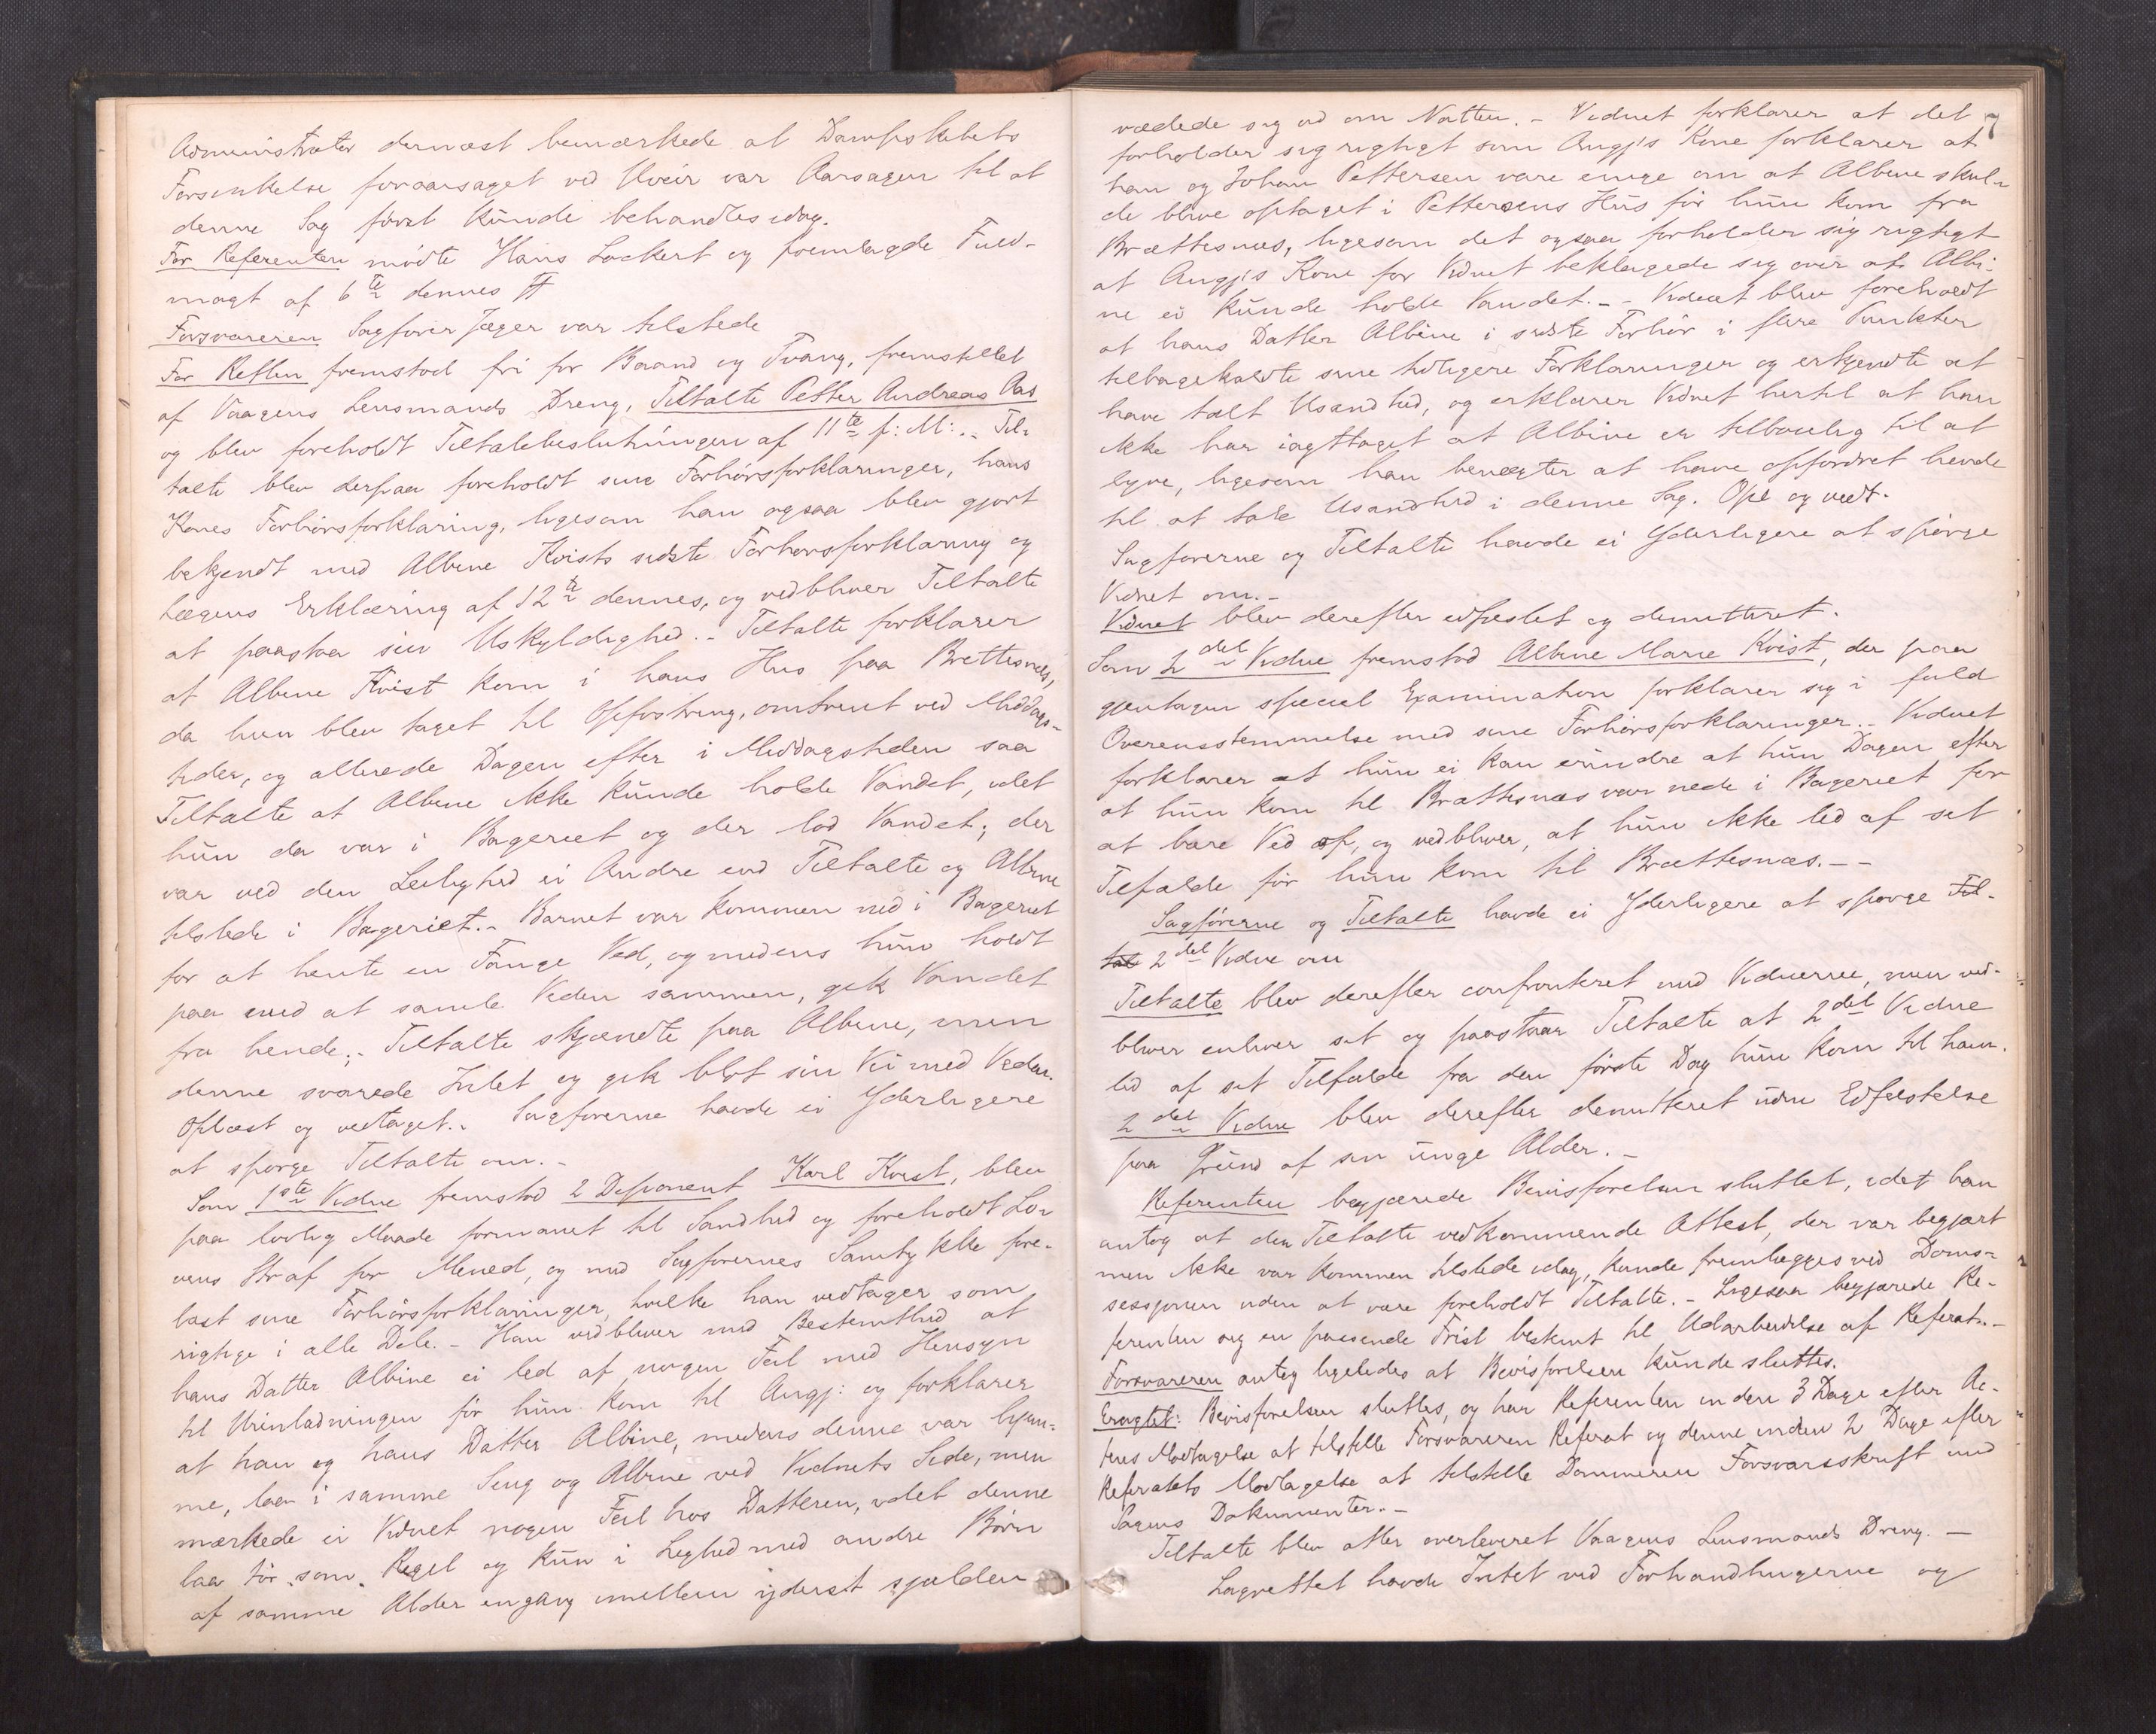 Administrator dernæst bemærkede at Dampskibets
Forsinkelse foraarsaget ved Uveir var Aarsagen til at
denne Sag først kunde behandles idag.
For Referenten mødte Hans Lockert og fremlagde Fuld-
magt af 6te dennes
Forsvareren Sagfører Jæger var tilstede
For Retten fremstod fri for Baand og Tvang, fremstillet
af Vaagens Lensmands Dreng, Tiltalte Petter Andreas Aas
og blev foreholdt Tiltalebeslutningen af 11te f: M:. Til-
talte blev derpaa foreholdt sine Forhørsforklaringer, hans
Kones Forhørsforklaring, ligesom han ogsaa blev gjort
bekjendt med Albine Kvists sidste Forhørsforklaring og
Lægens Erklæring af 12te dennes, og vedbliver Tiltalte
at paastaa sin Uskyldighed. - Tiltalte forklarer
at Albine Kvist kom i hans Hus paa Brettesnæs,
da hun blev taget til Opfostring, omtrent ved Middags-
tider, og allerede Dagen efter i Middagstiden saa
Tiltalte at Albine ikke kunde holde Vandet, idet
hun da var i Bageriet og der lod Vandet; der
var ved den Leilighed ei Andre end Tiltalte og Albine
tilstede i Bageriet. - Barnet var kommen ned i Bageriet
for at hente en Fange Ved, og medens hun holdt
paa med at samle Veden sammen, gik Vandet
fra hende; - Tiltalte skjændte paa Albine, men
denne svarede Intet og gik blot sin Vei med Veden.
Oplæst og vedtaget. - Sagførerne havde ei Yderligere
at spørge Tiltalte om. -
Som 1ste Vidne fremstod 2 Deponent Karl Kvist, blev
paa lovlig Maade formanet til Sandhed og foreholdt Lo-
vens Straf for Mened, og med Sagførernes Samtykke fore-
læst sine Forhørsforklaringer, hvilke han vedtager som
rigtige i alle Dele. - Han vedbliver med Bestemthed at
hans Datter Albine ei led af nogen Feil med Hensyn
til Urinladningen før hun kom til Angj: og forklarer
at han og hans Datter Albine, medens denne var hjem-
me, laa i samme Seng og Albine ved Vidnets Side, men
mærkede ei Vidnet nogen Feil hos Datteren, idet denne
laa tør som Regel og kun i Lighed med andre Børn
af samme Alder engang imellem yderst sjælden
7
vædede sig ud om Natten. - Vidnet forklarer at det
forholder sig rigtigt som Angj's Kone forklarer at
han og Johan Pettersen vare enige om at Albine skul-
de blive optaget i Pettersens Hus før hun kom fra
Brættesnæs, ligesom det ogsaa forholder sig rigtigt
at Angj's Kone for Vidnet beklagede sig over at Albi-
ne ei kunde holde Vandet. - - Vidnet blev foreholdt
at hans Datter Albine i sidste Forhør i flere Punkter
tilbagekaldte sine tidligere Forklaringer og erkjendte at
have talt Usandhed, og erklærer Vidnet hertil at han
ikke har iagttaget at Albine er tilbøielig til at
lyve, ligesom han benægter at have opfordret hende
til at tale Usandhed i denne Sag. Opl og vedt.
Sagførerne og Tiltalte havde ei Yderligere at spørge
Vidnet om. -
Vidnet blev derefter edfæstet og demitteret.
Som 2det Vidne fremstod Albine Marie Kvist, der paa
gjentagen speciel Examination forklarer sig i fuld
Overensstemmelse med sine Forhørsforklaringer. - Vidnet
forklarer at hun ei kan erindre at hun Dagen efter
at hun kom til Brættesnæs var nede i Bageriet for
at bære Ved op, og vedbliver, at hun ikke led af sit
Tilfælde før hun kom til Brættesnæs. - -
Sagførerne og Tiltalte havde ei Yderligere at spørge Til-
tal 2det Vidne om
Tiltalte blev derefter confronteret med Vidnerne, men ved-
bliver enhver sit og paastaar Tiltalte at 2det Vidne
led af sit Tilfælde fra den første Dag hun kom til ham.
2det Vidne blev derefter demitteret uden Edfæstelse
paa Grund af sin unge Alder. -
Referenten begjærede Bevisførelsen sluttet, idet han
antog at den Tiltalte vedkommende Attest, der var begjært
men ikke var kommen tilstede idag, kunde fremlægges ved Doms-
sessjonen uden at være foreholdt Tiltalte. - Ligesaa begjærede Re-
ferenten sig en passende Frist bestemt til Udarbeidelse af Referat. -
Forsvareren antog ligeledes at Bevisførelsen kunde sluttes.
Eragtet: Bevisførelsen sluttes, og har Referenten inden 3 Dage efter Ac-
tens Modtagelse at tilstille Forsvareren Referat og denne inden 2 Dage efter
Referatets Modtagelse at tilstille Dommeren Forsvarsskrift med
Sagens Dokumenter. -
Tiltalte blev atter overleveret Vaagens Lensmands Dreng. -
Lagrettet havde Intet ved Forhandlingerne og